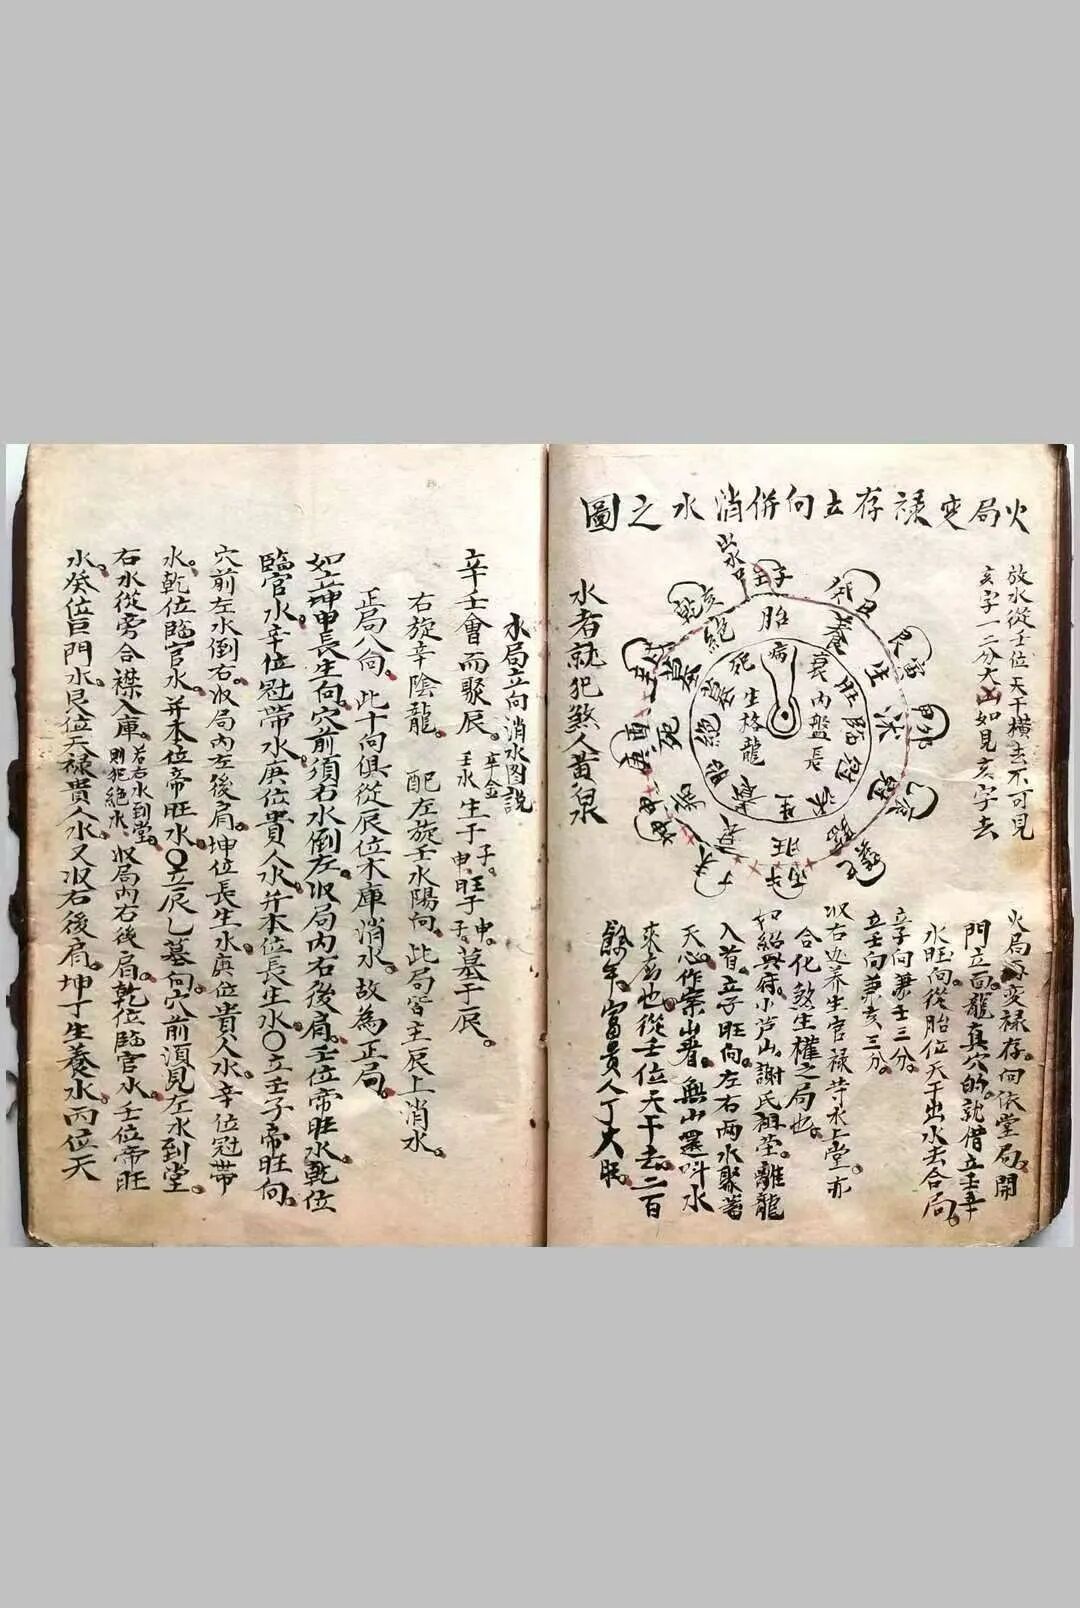 火局变禄存立向併消水之圖
放水從壬位天干横去不可見
亥字一二分大凶如見亥字去
壬子
癸丑
艮寅
甲卯
乾亥
庚酉
胎
養
生
沐
冠
旺
衰
病
死
墓
絕
病
衰
旺
臨
冠
沐
生
養
胎
絕
墓
死
内盤長
生格龍
火局再变禄存向依堂局開
門立面龍真穴的就借立壬辛
水旺向從胎位天干出水去合局
辛向兼戌三分
立壬向兼亥三分
收右边养生官禄等水上堂亦
合化煞生權之局也
如紹興府小芦山謝氏祖茔離龍
入首立子旺向左右兩水聚蓄
天心作案山者無山還叫水
來為也從壬位天干去二百
餘年富貴人丁大旺
水者就犯煞人黄泉
水局立向消水図説
辛壬會而聚辰 辛金壬水 生子申 旺子申 墓于辰
右旋辛陰龍 配左旋壬水陽向此局皆主辰上消水
正局八向 此十向俱從辰位木庫消水故為正局
如立坤申長生向穴前須右水倒左收局内右後肩壬位帝旺水乾位
臨官水辛位冠帶水庚位貴人水并本位長生水〇立壬子帝旺向
穴前左水倒右收局内左後肩坤位長生水庚位貴人水辛位冠帶
水乾位臨官水并本位帝旺水〇立辰乙墓向穴前須見左水到堂
右水從旁合襟入庫 若右水到堂則犯絕水 收局内右後肩乾位臨官水壬位帝旺
水癸位巨門水艮位天禄貴人水又收右後肩坤丁生養水丙位天